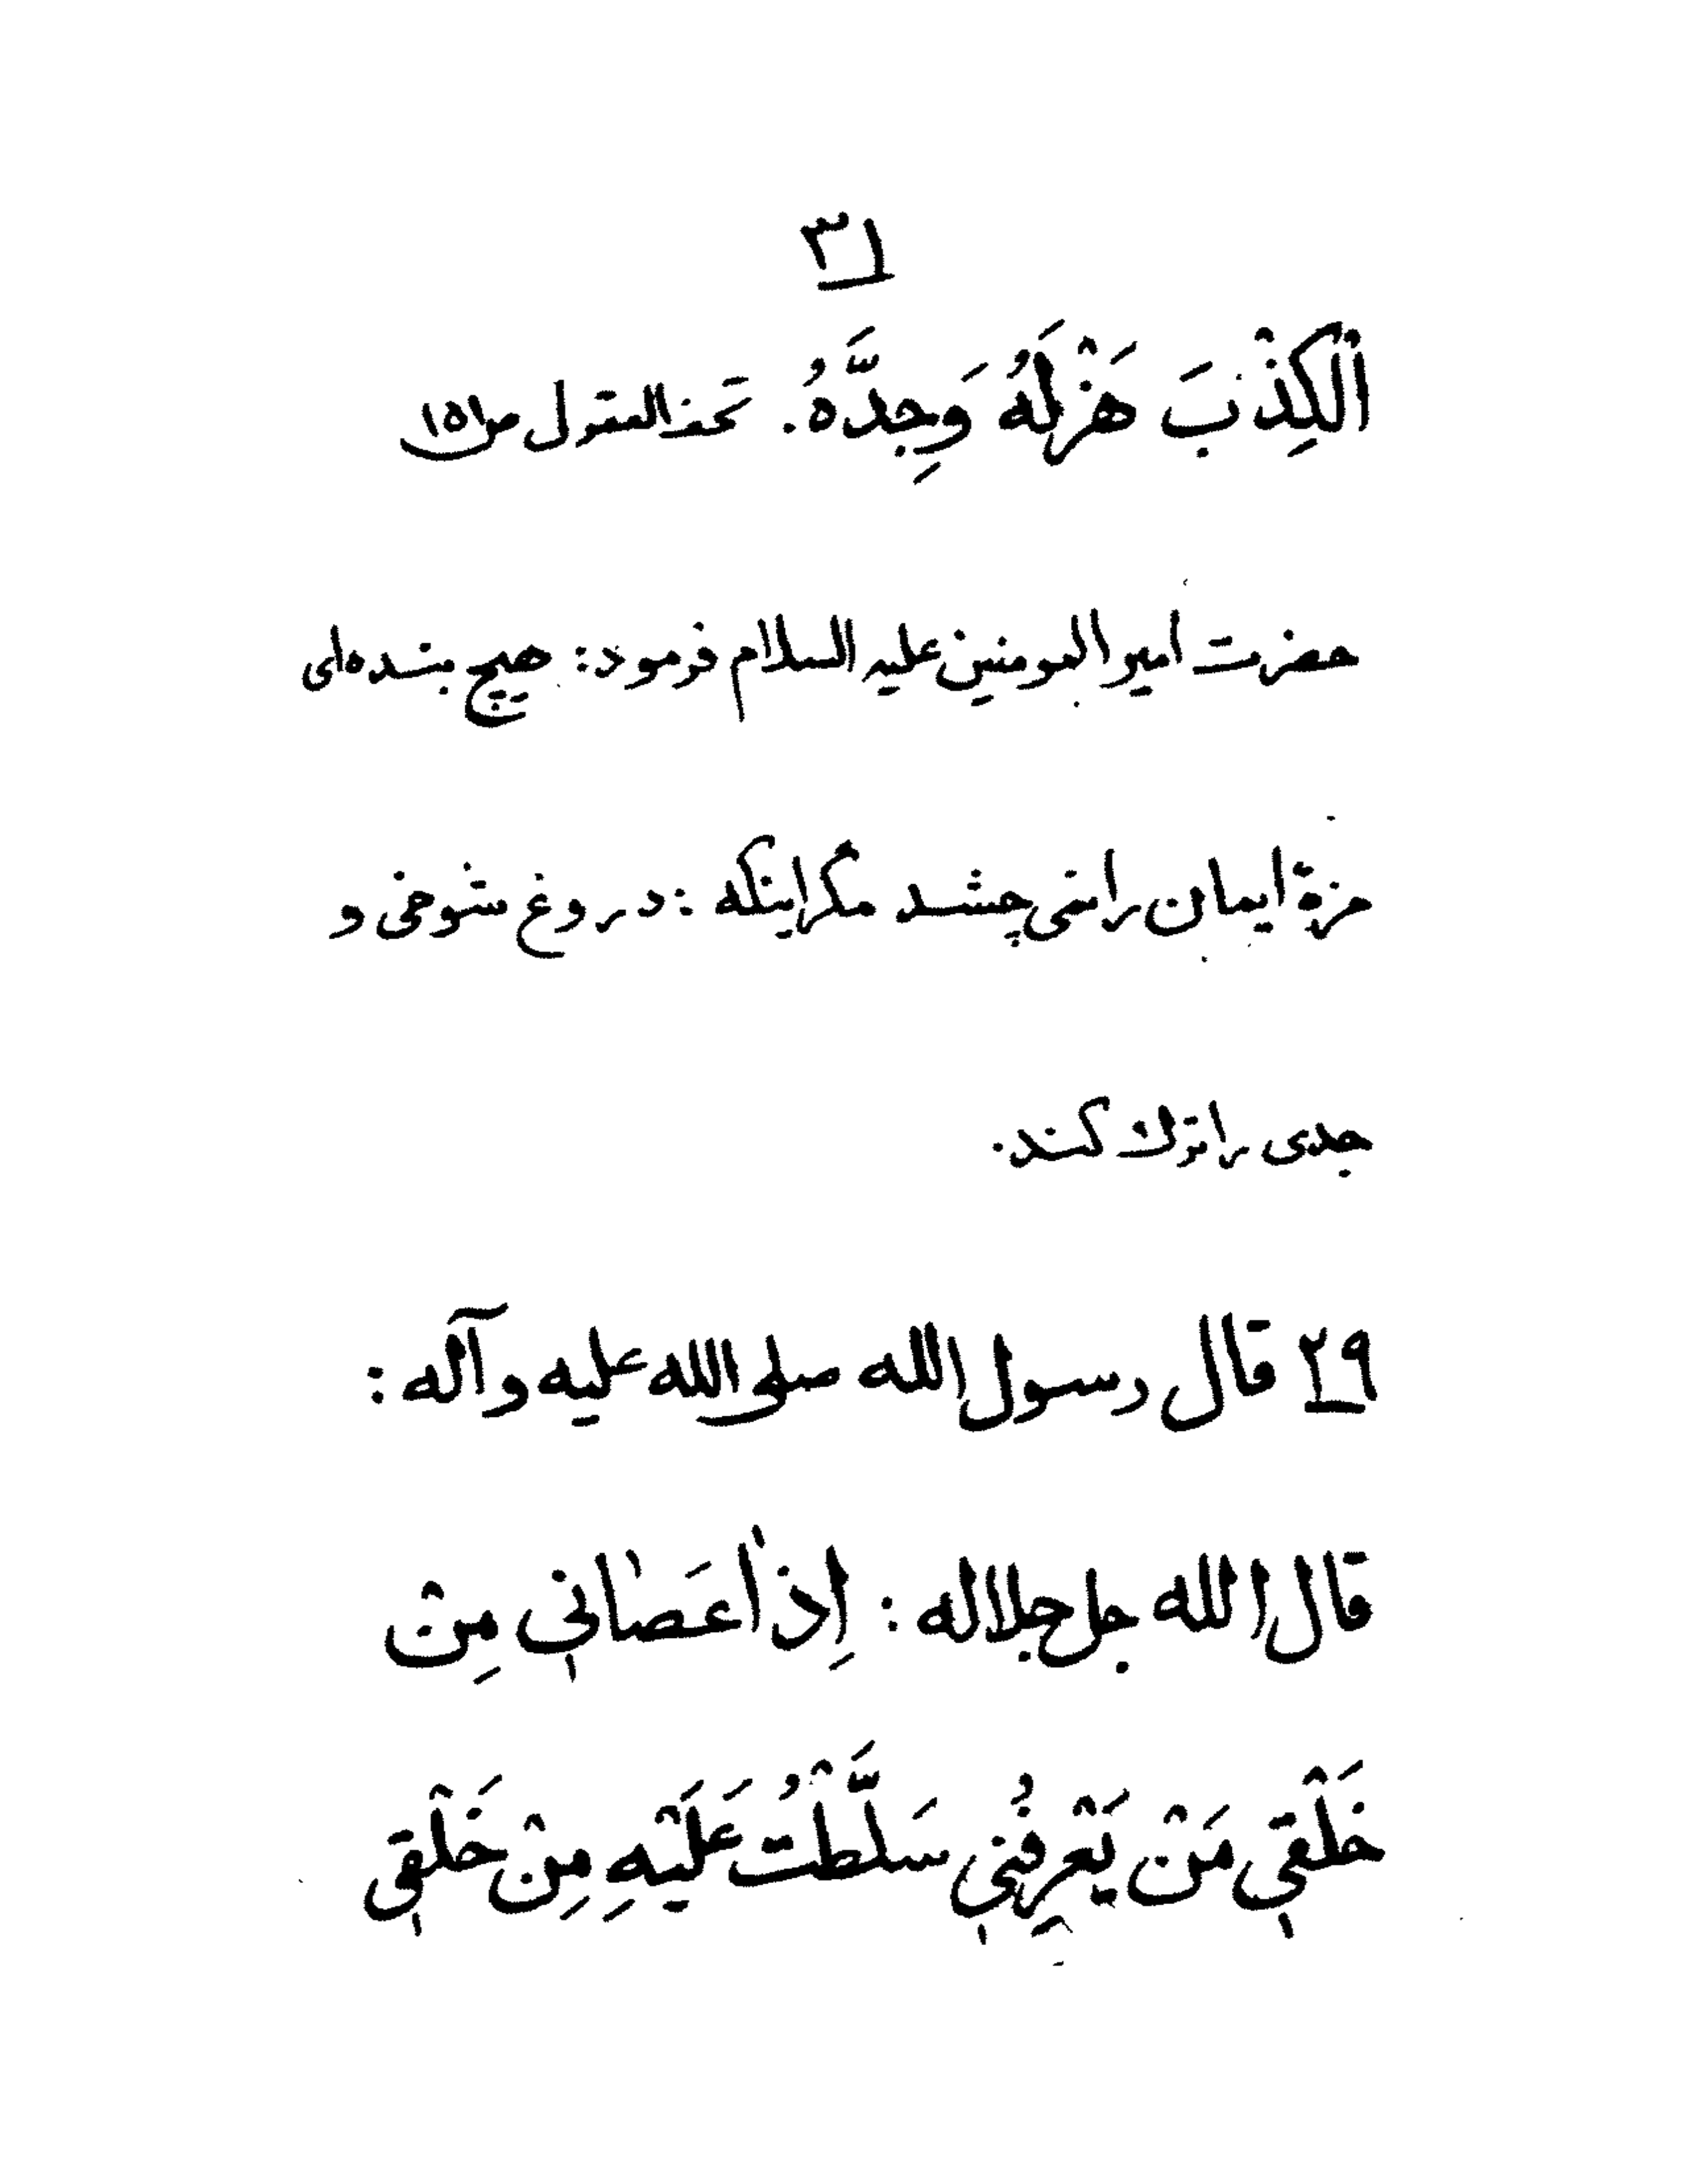 ٣١
اَلْكِذْبَ هَزْلَهُ وَجِدَّهُ. تحف العقول ص١٥١
حضرت امیرالمومنین علیه السلام فرمود: هیچ بنده‌ای
مزهٔ ایمان را نمی چشد مگر اینکه : دروغ شوخی و
جدی را ترك کند.
٢٩ قال رسول الله صلی الله علیه وآله :
قال الله جل جلاله : اِذٰا عَصٰانی مِنْ
خَلْقی مَنْ یَعْرِفُنی سَلَّطْتُ عَلَیْهِ مِنْ خَلْقی